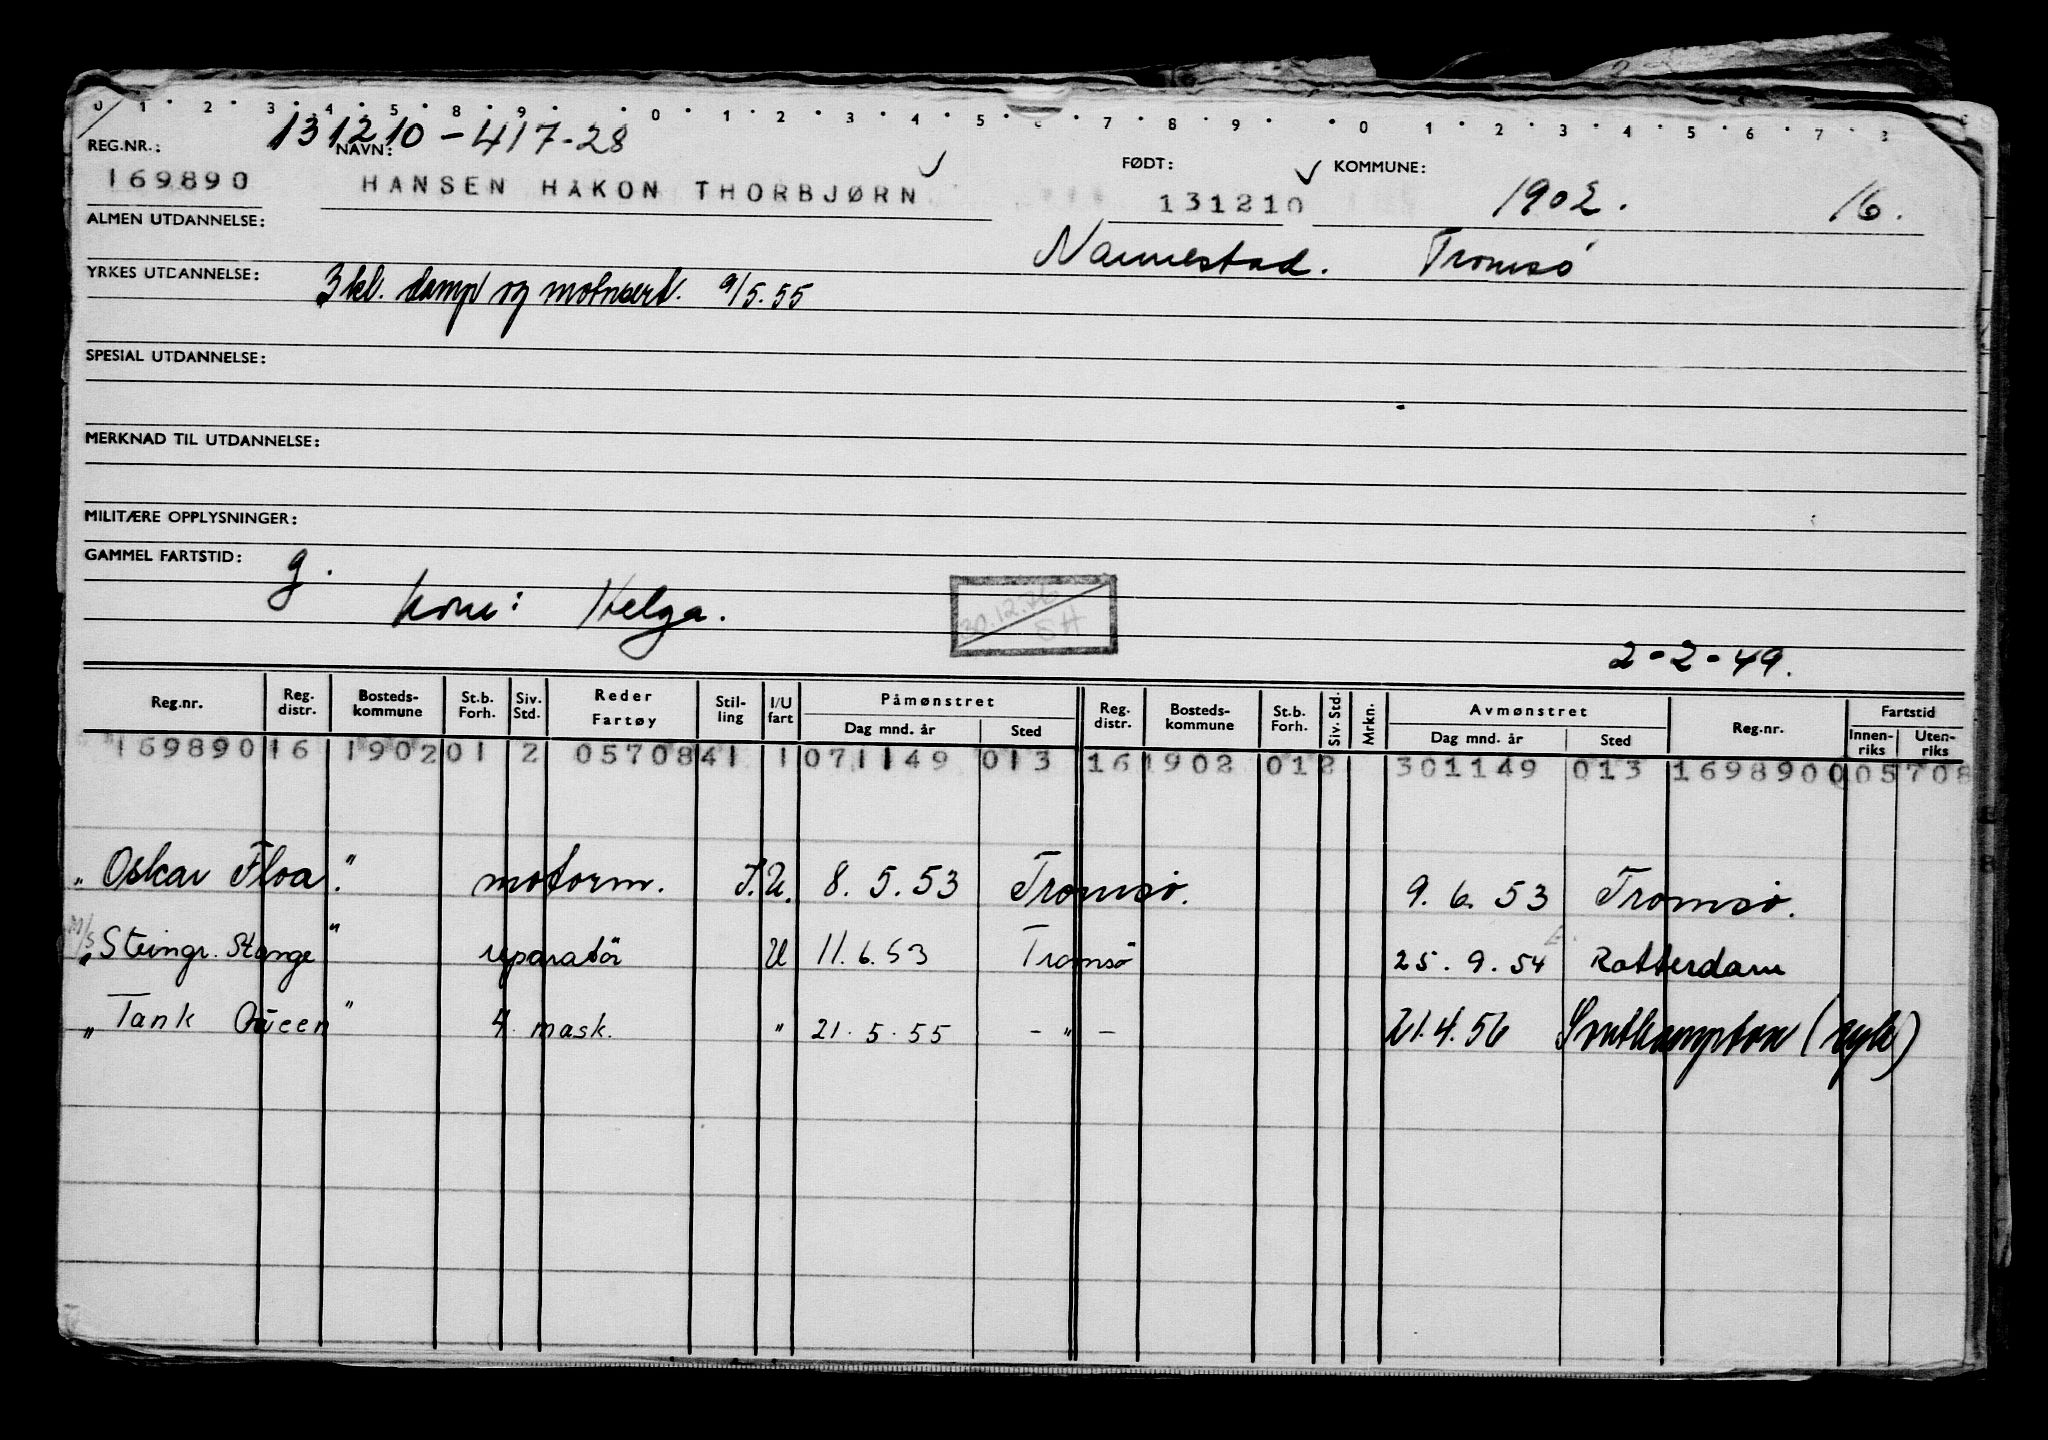 0 1 2 3 4 5 8 9 0 1 2 3 4 5 6 7 8 9 0 1 2 3 4 5 6 7 8
131210-417-28
REG.NR.: NAVN: FØDT: KOMMUNE:
169890 HANSEN HÅKON THORBJØRN 131210 1902. 16.
ALMEN UTDANNELSE: Nannestad. Tromsø
YRKES UTDANNELSE: 3 kl. damp og motorsert. 9/5.55
SPESIAL UTDANNELSE:
MERKNAD TIL UTDANNELSE:
MILITÆRE OPPLYSNINGER:
GAMMEL FARTSTID: g.
kone: Helga. 30.12.76 SH
2-2-49.
Reg.nr. Reg. distr. Bosteds-kommune St.b. Forh. Siv. Std. Reder Fartøy Stil-ling I/U fart Påmønstret Dag mnd. år Sted Reg. distr. Bosteds-kommune St.b. Forh. Siv. Std. Mrkn. Avmønstret Dag mnd. år Sted Reg.nr. Fartstid Innen-riks Uten-riks
169890 16 1902 01 2 05708 41 1 071149 013 16 1902 01 2 301149 013 169890 005708
" Oskar Floa. " motorm. I.U. 8.5.53 Tromsø. 9.6.53 Tromsø.
M/S " Steingr. Stange " reparatör U 11.6.53 Tromsö 25.9.54 Rotterdam
" Tank Queen " 4 mask. " 21.5.55 - " - 21.4.56 Southampton (syk)